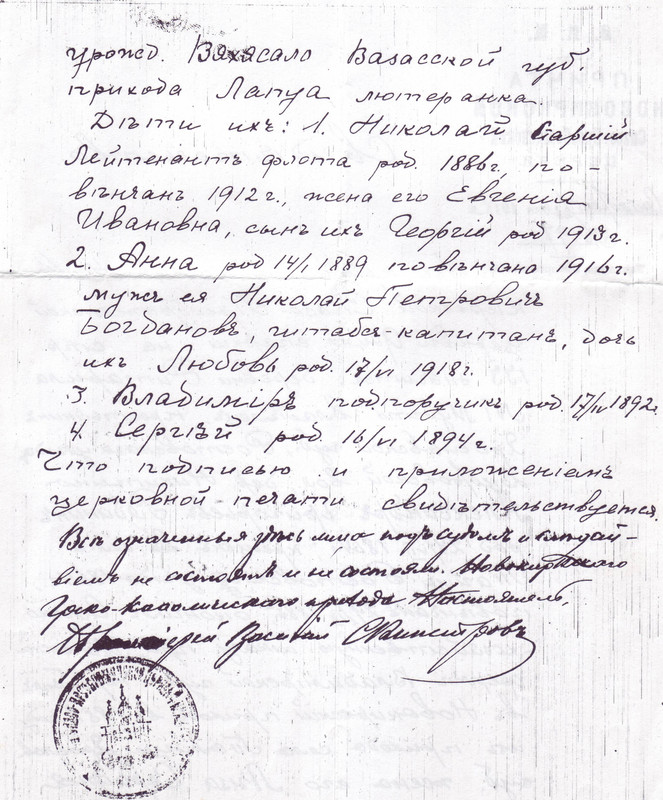 урожд. Вяхясало Вазасской губ.
прихода Лапуа лютеранка.
Дѣти ихъ: 1. Николай Старшій
Лейтенантъ флота род. 1886г., по-
вѣнчан 1912г., жена его Евгенія
Ивановна, сынъ ихъ Георгій род 1913г.
2. Анна род 14/I 1889 повѣнчана 1916г.
мужъ ея Николай Петровичъ
Богдановъ, штабсъ-капитанъ, дочь
ихъ Любовь род. 17/VI 1918г.
3. Владиміръ подпоручикъ род. 17/IV 1892г.
4. Сергѣй род. 16/VI 1894г.
Что подписью и приложеніемъ
церковной печати свидѣтельствуется.
Всѣ означенныя здѣсь лица подъ судомъ и слѣдст-
віемъ не состоятъ и не состояли. Новокиркского
Греко-Каѳолическаго прихода Настоятель,
Василій